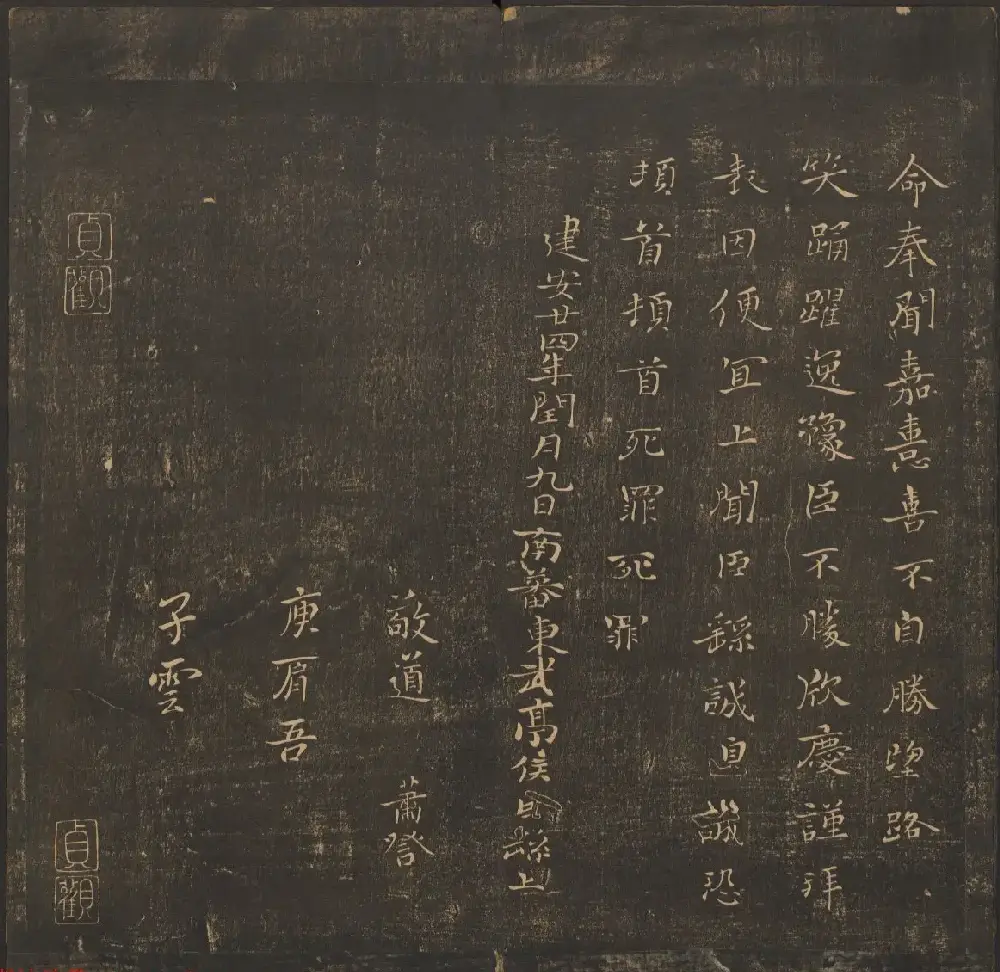 命奉聞嘉憙喜不自勝望路
笑踊躍逸豫臣不勝欣慶謹拜
表因便冝上聞臣繇誠皇誠恐
頓首頓首死罪死罪
建安廿四年閏月九日南蕃東武亭侯臣繇上
敬道 蕭
庾肩吾
子雲
貞觀
貞觀